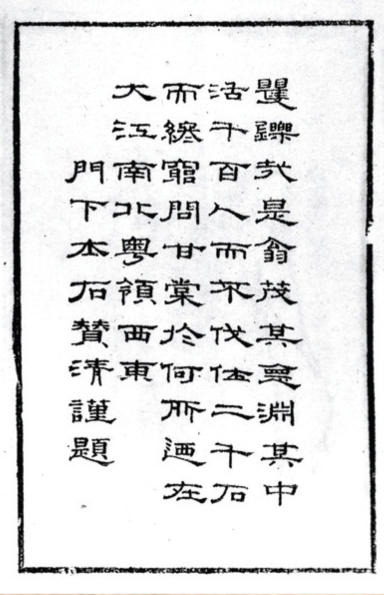 矍鑠哉是翁茂其悳淵其中
活千百人而不伐仕二千石
而終窮問甘棠於何所迺在
大江南北粤領西東
門下士石贊清謹題